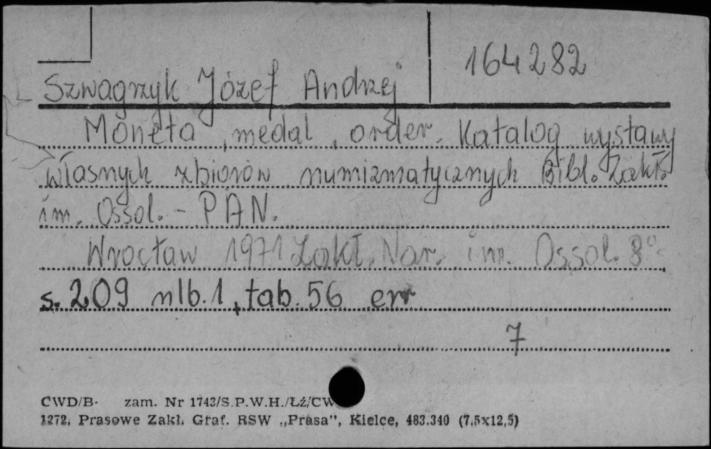 164282
Szwagrzyk Józef Andrzej
Moneta, medal, order. Katalog wystawy
własnych zbiorów numizmatycznych Bibl. Zakł.
im. Ossol. - PAN.
Wrocław 1971 Zakł. Nar. im. Ossol. 8°.
s. 209 nlb. 1, tab. 56 err
7
CWD/B- zam. Nr 1743/S.P.W.H./ŁŹ/CW
1272, Prasowe Zakł. Graf. RSW „Prasa", Kielce, 483.340 (7,5x12,5)